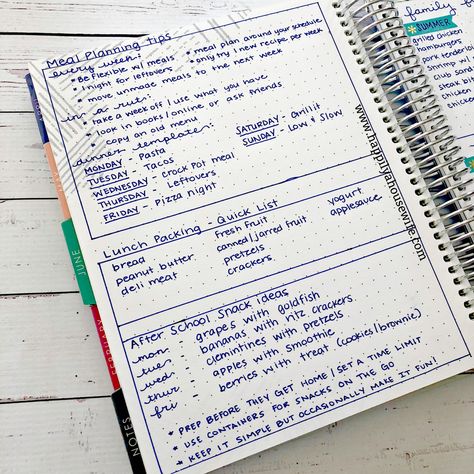 Meal Planning Tips
every week:
• be flexible w/ meals
• meal plan around your schedule
• 1 night for leftovers
• only try 1 new recipe per week
• move unmade meals to the next week
in a rut:
• take a week off / use what you have
• look in books / online or ask friends
• copy an old menu
dinner template:
MONDAY - Pasta
TUESDAY - Tacos
WEDNESDAY - Crock Pot meal
THURSDAY - Leftovers
FRIDAY - Pizza night
SATURDAY - Grill it
SUNDAY - Low & Slow
Lunch Packing - Quick List
bread
peanut butter
deli meat
fresh fruit
canned/jarred fruit
pretzels
crackers
yogurt
applesauce
After School Snack Ideas
mon - grapes with goldfish
tue - bananas with ritz crackers
wed - clementines with pretzels
thur - apples with smoothie
fri - berries with treat (cookies/brownie)
* PREP BEFORE THEY GET HOME / SET A TIME LIMIT
* USE CONTAINERS FOR SNACKS ON THE GO
* KEEP IT SIMPLE BUT OCCASIONALLY MAKE IT FUN!
www.happilyahousewife.com
family
SUMMER
grilled chicken
hamburgers
pork tender
shrimp w/
crab
steak
chicken
JUNE
FEBRUARY
NOTES